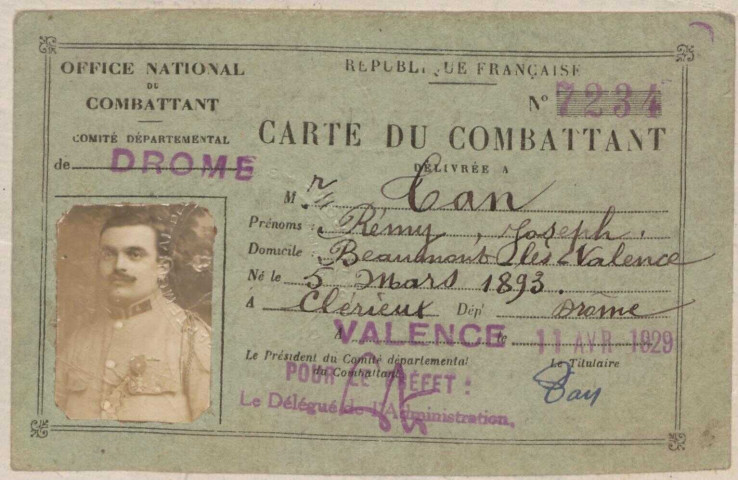 OFFICE NATIONAL
DU
COMBATTANT
COMITÉ DÉPARTEMENTAL
de DROME
RÉPUBLIQUE FRANÇAISE
N° 7234
CARTE DU COMBATTANT
DÉLIVRÉE A
M r Tan
Prénoms : Rémy, Joseph.
Domicile : Beaumont lès-Valence
Né le 5 Mars 1893.
A Clérieux Dépt Drôme
A VALENCE le 11 AVR 1929
Le Président du Comité départemental
du Combattant
Le Titulaire
POUR LE PRÉFET :
Le Délégué de l'Administration,